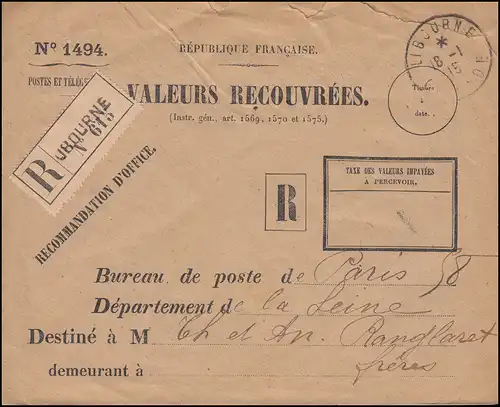 Nº 1494.
RÉPUBLIQUE FRANÇAISE.
LIBOURNE
POSTES ET TÉLÉG
VALEURS RECOUVRÉES.
(Instr. gén., art. 1569, 1570 et 1575.)
Timbre
à
date.
R
LIBOURNE
Nº 615
RECOMMANDATION D'OFFICE.
R
TAXE DES VALEURS IMPAYÉES
A PERCEVOIR.
Bureau de poste de Paris 58
Département de la Seine
Destiné à M Th et An. Ranglaret
frères
demeurant à